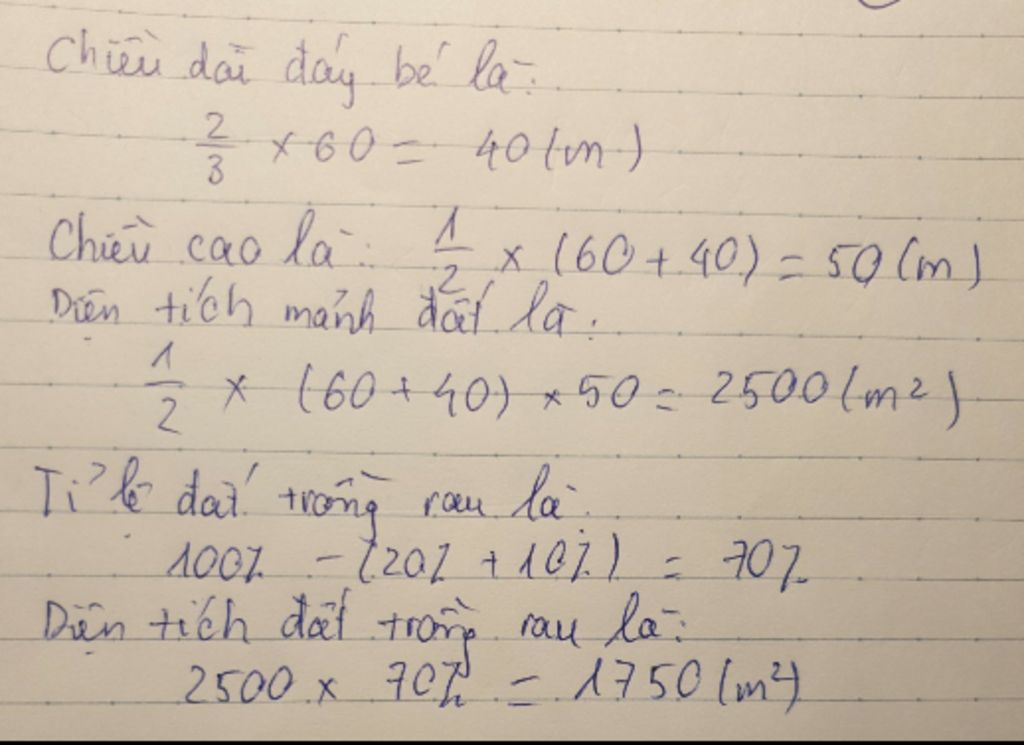 Chiều dài đáy bé là:
2/3 × 60 = 40 (m)
Chiều cao là: 1/2 × (60 + 40) = 50 (m)
Diện tích mảnh đất là:
1/2 × (60 + 40) × 50 = 2500 (m²)
Tỉ lệ đất trồng rau là:
100% - (20% + 10%) = 70%
Diện tích đất trồng rau là:
2500 × 70% = 1750 (m²)